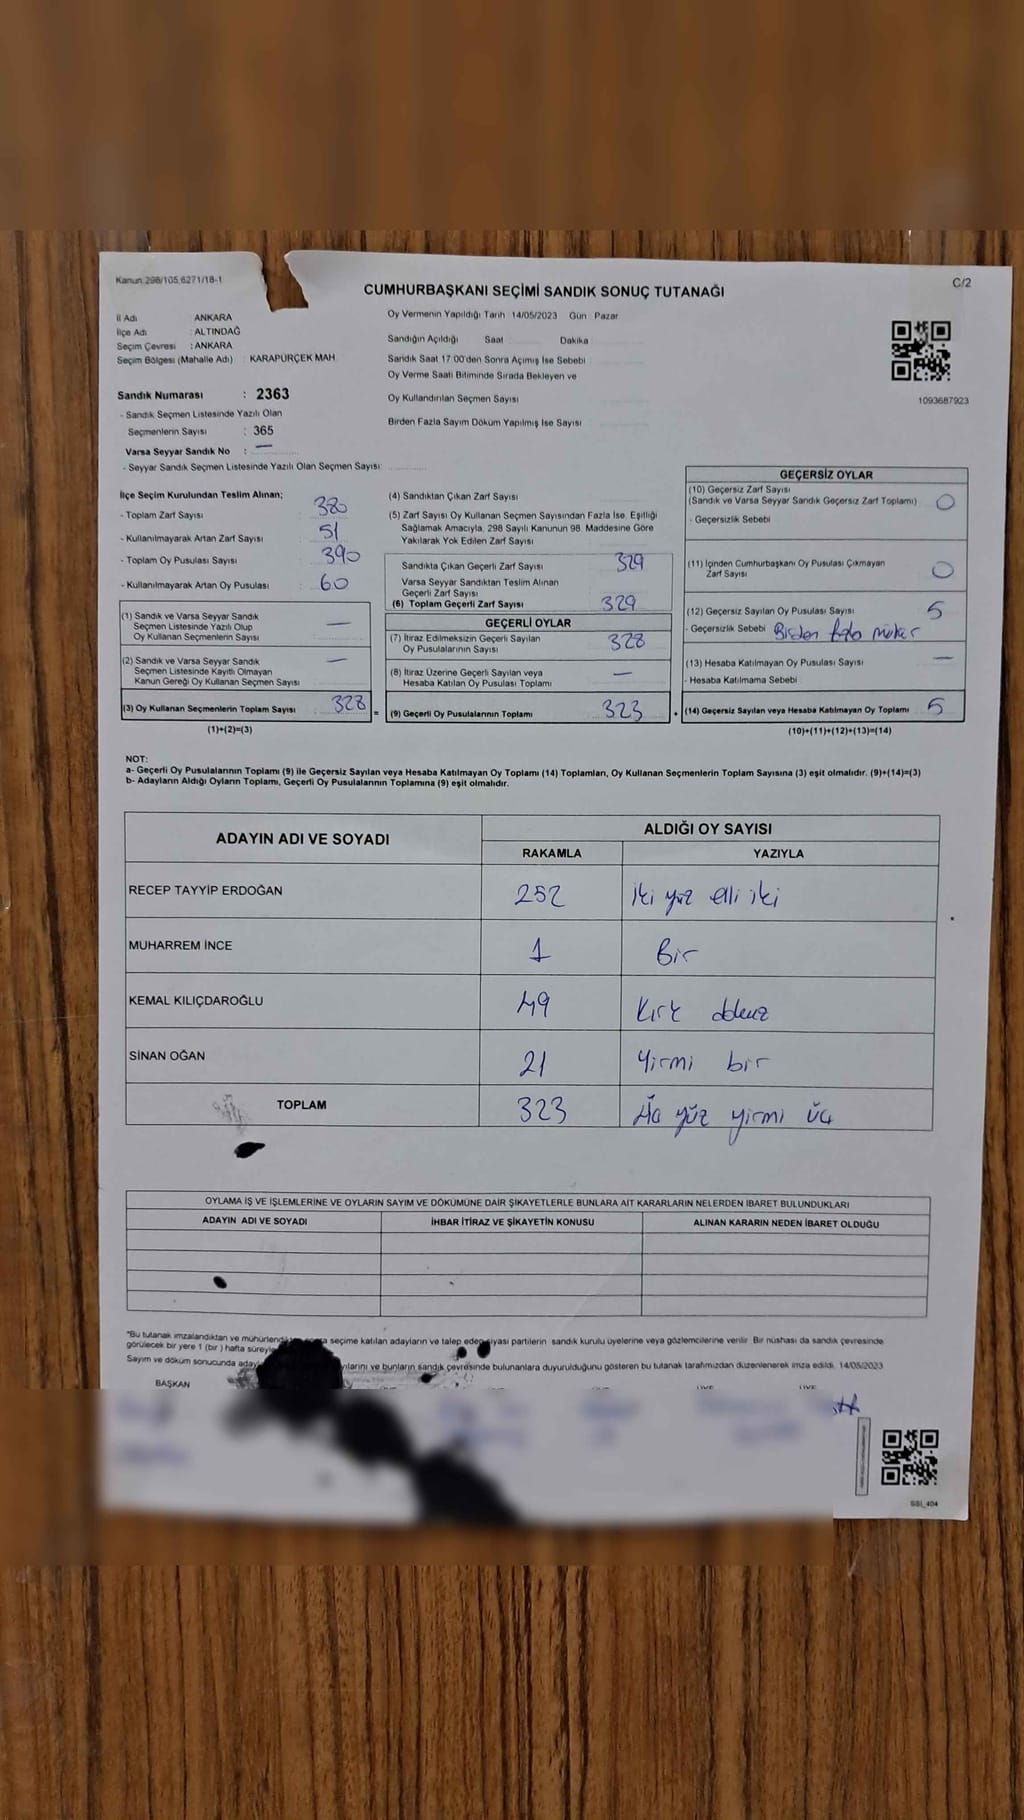 Kanun:298/105,6271/18-1
C/2
CUMHURBAŞKANI SEÇİMİ SANDIK SONUÇ TUTANAĞI
İl Adı ANKARA
İlçe Adı : ALTINDAĞ
Seçim Çevresi : ANKARA
Seçim Bölgesi (Mahalle Adı) : KARAPÜRÇEK MAH.
Oy Vermenin Yapıldığı Tarih 14/05/2023 Gün Pazar
Sandığın Açıldığı Saat Dakika
Sandık Saat 17:00'den Sonra Açımış İse Sebebi
Oy Verme Saati Bitiminde Sırada Bekleyen ve
Oy Kullandırılan Seçmen Sayısı
Birden Fazla Sayım Döküm Yapılmış İse Sayısı
1093687923
Sandık Numarası : 2363
- Sandık Seçmen Listesinde Yazılı Olan
Seçmenlerin Sayısı : 365
Varsa Seyyar Sandık No : —
- Seyyar Sandık Seçmen Listesinde Yazılı Olan Seçmen Sayısı:
İlçe Seçim Kurulundan Teslim Alınan;
- Toplam Zarf Sayısı : 380
- Kullanılmayarak Artan Zarf Sayısı : 51
- Toplam Oy Pusulası Sayısı : 390
- Kullanılmayarak Artan Oy Pusulası : 60
(1) Sandık ve Varsa Seyyar Sandık
Seçmen Listesinde Yazılı Olup
Oy Kullanan Seçmenlerin Sayısı —
(2) Sandık ve Varsa Seyyar Sandık
Seçmen Listesinde Kayıtlı Olmayan
Kanun Gereği Oy Kullanan Seçmen Sayısı —
(3) Oy Kullanan Seçmenlerin Toplam Sayısı 328 =
(1)+(2)=(3)
(4) Sandıktan Çıkan Zarf Sayısı
(5) Zarf Sayısı Oy Kullanan Seçmen Sayısından Fazla İse, Eşitliği
Sağlamak Amacıyla, 298 Sayılı Kanunun 98. Maddesine Göre
Yakılarak Yok Edilen Zarf Sayısı
Sandıkta Çıkan Geçerli Zarf Sayısı 329
Varsa Seyyar Sandıktan Teslim Alınan
Geçerli Zarf Sayısı
(6) Toplam Geçerli Zarf Sayısı 329
GEÇERLİ OYLAR
(7) İtiraz Edilmeksizin Geçerli Sayılan
Oy Pusulalarının Sayısı 328
(8) İtiraz Üzerine Geçerli Sayılan veya
Hesaba Katılan Oy Pusulası Toplamı —
(9) Geçerli Oy Pusulalarının Toplamı 323 +
GEÇERSİZ OYLAR
(10) Geçersiz Zarf Sayısı
(Sandık ve Varsa Seyyar Sandık Geçersiz Zarf Toplamı) 0
- Geçersizlik Sebebi
(11) İçinden Cumhurbaşkanı Oy Pusulası Çıkmayan
Zarf Sayısı 0
(12) Geçersiz Sayılan Oy Pusulası Sayısı 5
- Geçersizlik Sebebi Birden fazla mühür
(13) Hesaba Katılmayan Oy Pusulası Sayısı —
- Hesaba Katılmama Sebebi
(14) Geçersiz Sayılan veya Hesaba Katılmayan Oy Toplamı 5
(10)+(11)+(12)+(13)=(14)
NOT:
a- Geçerli Oy Pusulalarının Toplamı (9) ile Geçersiz Sayılan veya Hesaba Katılmayan Oy Toplamı (14) Toplamları, Oy Kullanan Seçmenlerin Toplam Sayısına (3) eşit olmalıdır. (9)+(14)=(3)
b- Adayların Aldığı Oyların Toplamı, Geçerli Oy Pusulalarının Toplamına (9) eşit olmalıdır.
ADAYIN ADI VE SOYADI ALDIĞI OY SAYISI
RAKAMLA YAZIYLA
RECEP TAYYİP ERDOĞAN 252 iki yüz elli iki
MUHARREM İNCE 1 Bir
KEMAL KILIÇDAROĞLU 49 Kırk dokuz
SİNAN OĞAN 21 Yirmi bir
TOPLAM 323 üç yüz yirmi üç
OYLAMA İŞ VE İŞLEMLERİNE VE OYLARIN SAYIM VE DÖKÜMÜNE DAİR ŞİKAYETLERLE BUNLARA AİT KARARLARIN NELERDEN İBARET BULUNDUKLARI
ADAYIN ADI VE SOYADI İHBAR İTİRAZ VE ŞİKAYETİN KONUSU ALINAN KARARIN NEDEN İBARET OLDUĞU
"Bu tutanak imzalandıktan ve mühürlendi seçime katılan adayların ve talep eden siyasi partilerin sandık kurulu üyelerine veya gözlemcilerine verilir. Bir nüshası da sandık çevresinde
görülecek bir yere 1 (bir) hafta süreyle
Sayım ve döküm sonucunda aday ve bunların sandık çevresinde bulunanlara duyurulduğunu gösteren bu tutanak tarafımızdan düzenlenerek imza edildi. 14/05/2023
BAŞKAN
SSI_404